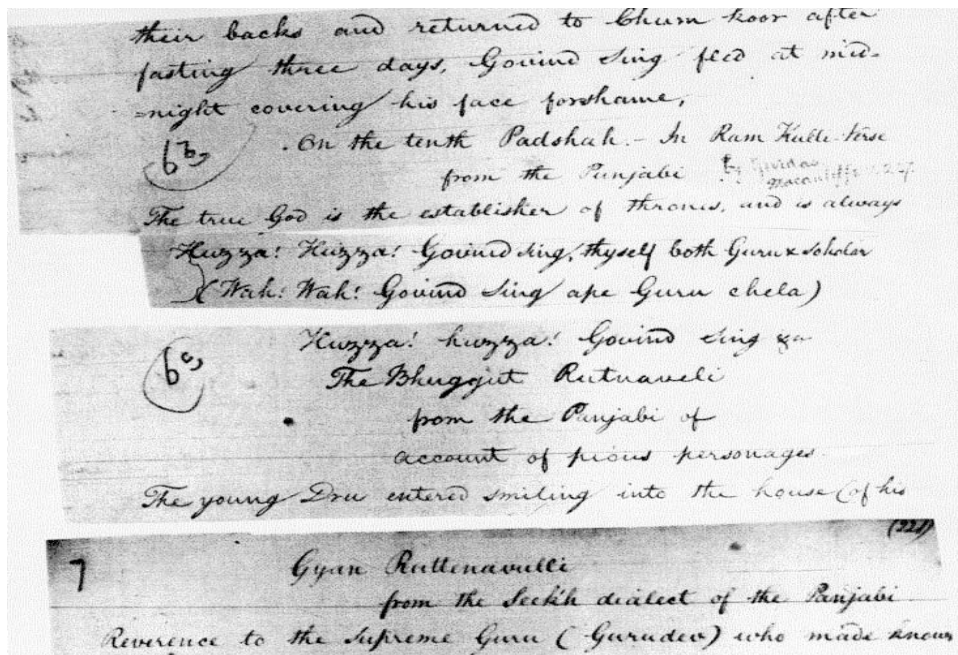 their backs and returned to Chum koor after
fasting three days, Govind Sing fled at mid-
=night covering his face forshame,
6b, . On the tenth Padshah. - In Ram Kulle Verse
from the Punjabi by Gurdas
Macauliffe
The true God is the establisher of thrones, and is always
Huzza! Huzza! Govind Sing, thyself both Guru & scholar
(Wah! Wah! Govind Sing ape Guru chela)
Huzza! huzza! Govind Sing
6c, The Bhuggut Rutnaveli
from the Panjabi of
account of pious personages.
The young Dru entered smiling into the house (of his
(221)
7 Gyan Ruttenavulli
from the Seekh dialect of the Panjabi
Reverence to the Supreme Guru (Gurudev) who made known